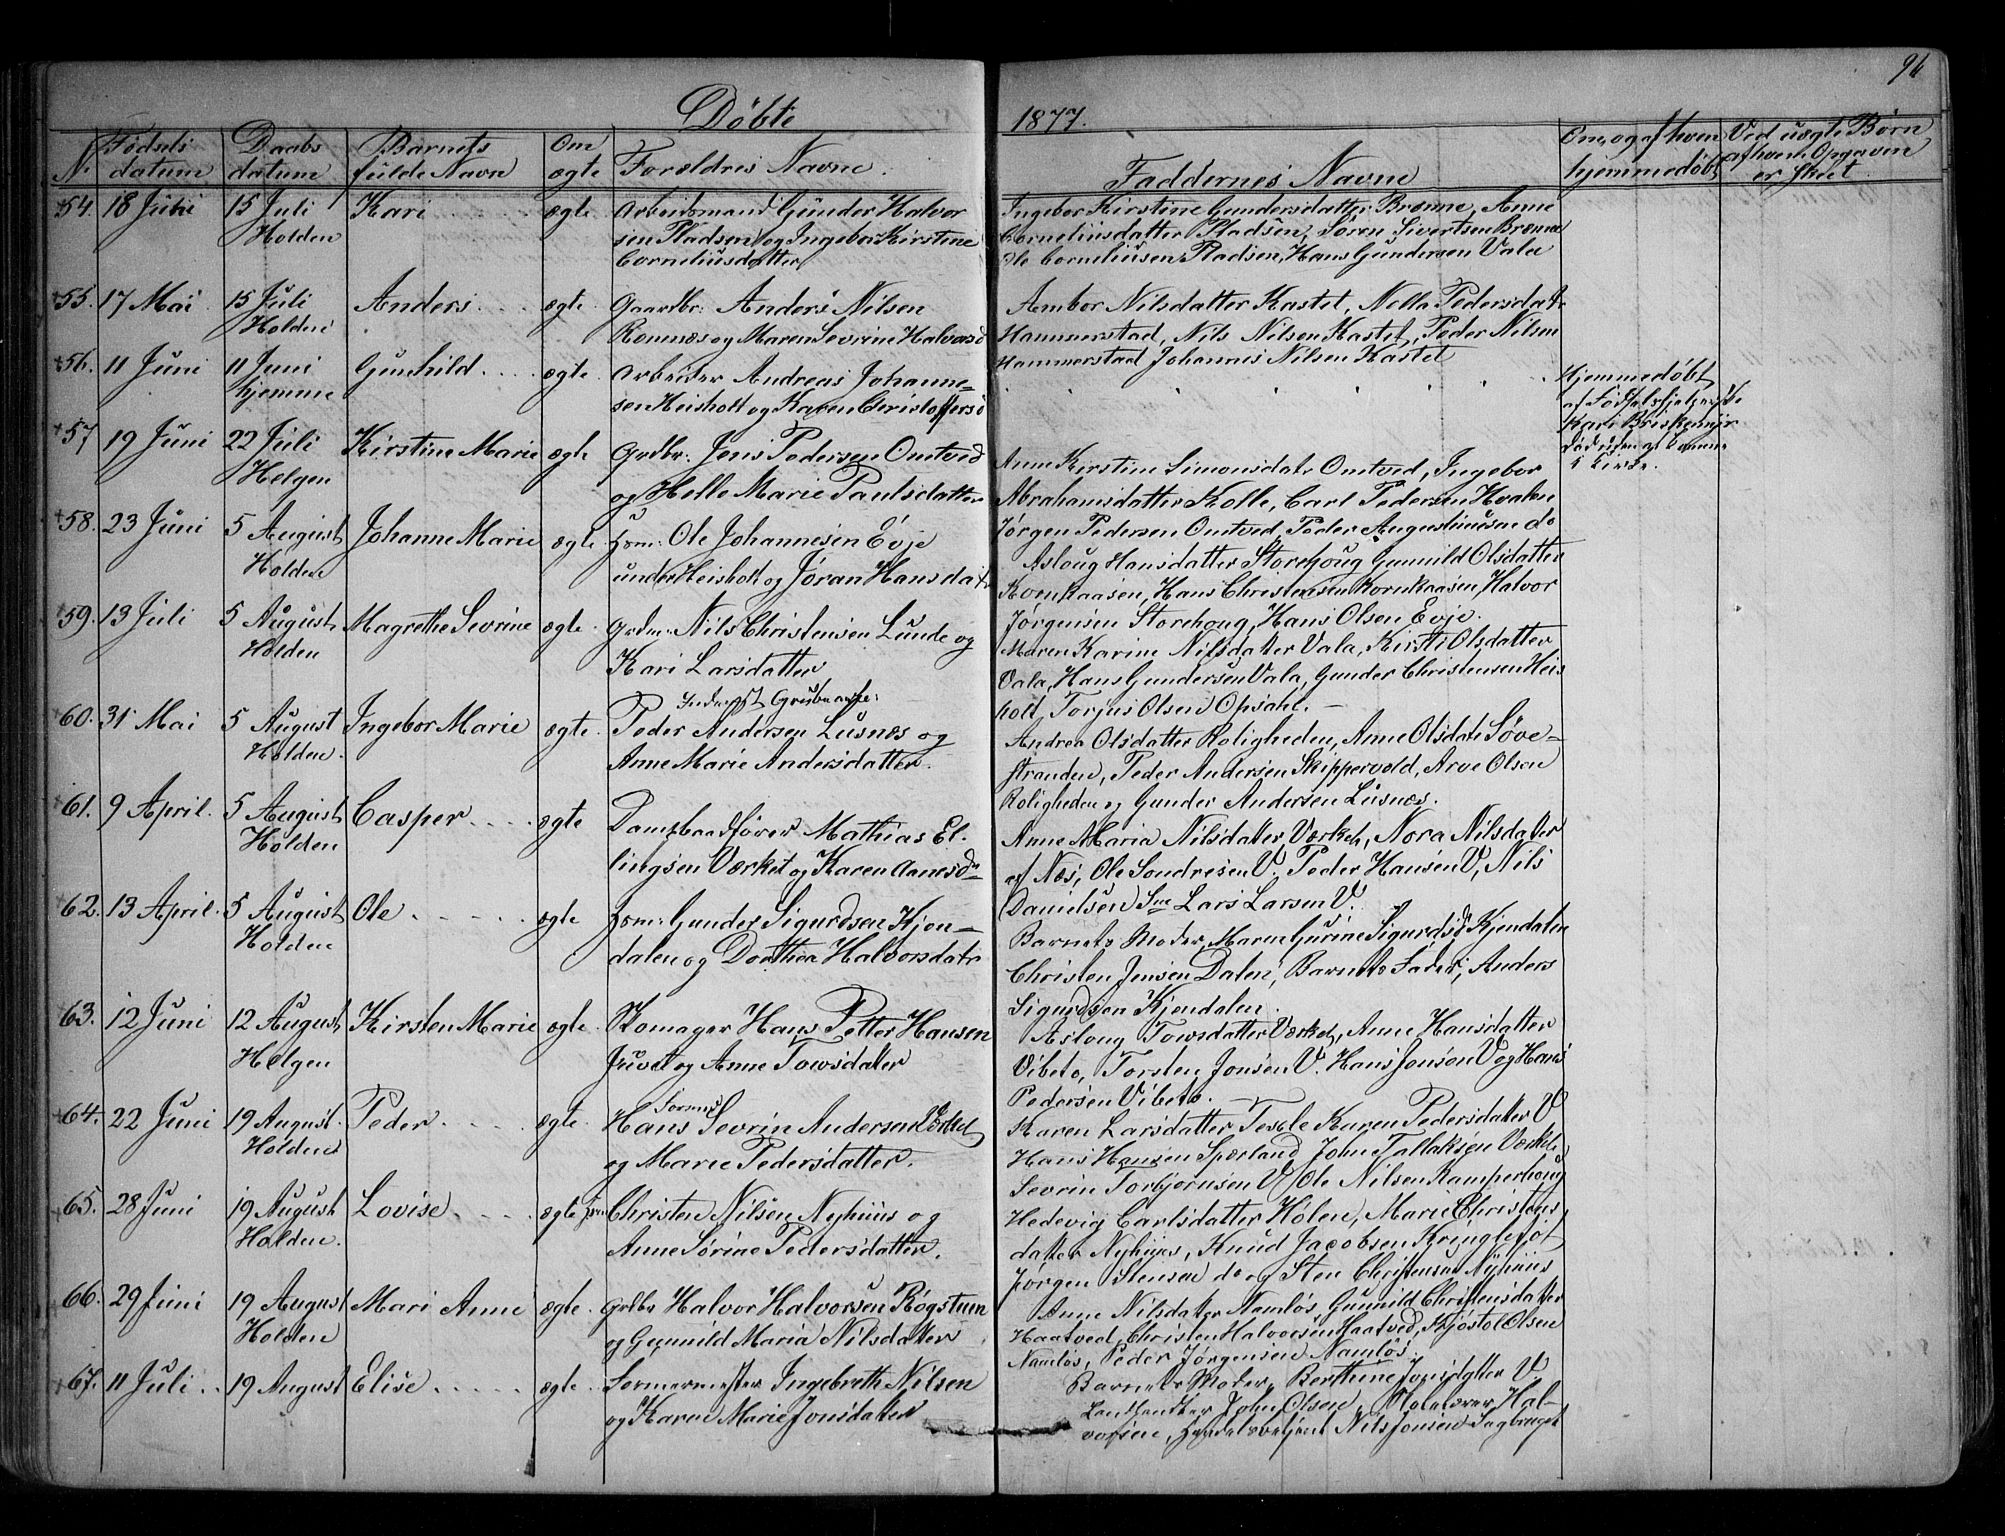 96
Döbte
1877.
N. Fødsels datum Daabs datum Barnets fulde Navn Om ægte Forældres Navne. Faddernes Navne Om, og af hvem hjemmedøbt Ved uægte Børn af hvem Opgaven er skeet
54. 18 Juni 15 Juli Holden Kari ægte Arbeidsmand Gunder Halvor
sen Pladsen og Ingebor Kirstine
Corneliusdatter
Ingebor Kirstine Gundersdatter Brenne, Anne
Corneliusdatter Pladsen, Søren Sivertsen Brenne
Ole Corneliusen Pladsen, Hans Gundersen Vala
55. 17 Mai 15 Juli Holden Anders ægte. Gaardbr: Anders Nilsen
Romnæs og Maren Sevrine Halvorsd
Ambor Nilsdatter Kastet, Nella Pedersdatr
Hammerstad, Nils Nilsen Kastet, Peder Nilsen
Hammerstad Johannes Nilsen Kastet
56. 11 Juni 11 Juni hjemme Gunhild ægte. Arbeider Andreas Johanne=
sen Heisholt og Karen Christoffersd
Hjemmedøbt
af Fødselshjelperske
Kari Briskemyr
død uden at komme
i Kirke.
57 19 Juni 22 Juli Helgen Kirstine Marie ægte Grdbr: Jens Pedersen Omtved
og Helle Marie Paulsdatter
Anne Kirstine Simonsdatr Omtved, Ingebor
Abrahamsdatter Kolle, Carl Pedersen Hvalen
Jørgen Pedersen Omtved, Peder Augustinusen do
58. 23 Juni 5 August Holden Johanne Marie ægte. Hsm: Ole Johannesen Evje
under Heisholt og Jøran Hansdatr
Aslaug Hansdatter Storehaug Gunnild Olsdatter
Kornkaasen, Hans Christensen Kornkaasen, Halvor
Jørgensen Storehaug, Hans Olsen Evje.
59. 13 Juli 5 August Holden Magrethe Sevrine ægte. Grdm: Nils Christensen Lunde og
Kari Larsdatter
Maren Karine Nilsdatter Vala, Kirsti Olsdatter
Vala, Hans Gundersen Vala, Gunder Christensen Heis
holt, Torjus Olsen Opsahl.
60. 31 Mai 5 August Holden. Ingebor Marie ægte. Inderst Grubearb:
Peder Andersen Lusnæs og
Anne Marie Andersdatter.
Andrea Olsdatter Roligheden, Anne Olsdatr Søve=
stranden, Peder Andersen Skippervold, Arve Olsen
Roligheden og Gunder Andersen Lusnæs.
61. 9 April. 5 August Holden Casper ægte Dampbaadfører Mathias El-
lingsen Værket og Karen Aanesdr
Anne Maria Nilsdatter Værket, Nora Nilsdatter
af Næs, Ole Sondresen V. Peder Hansen V, Nils
Danielsen Lars Larsen V.
62. 13 April. 5 August Holden Ole ægte Hsm: Gunder Sigurdsen Kjen=
dalen og Dorthea Halvorsdatr
Barnets Moder, Maren Gurine Sigurdsd Kjendalen
Christen Jensen Dalen, Barnets Fader, Anders
Sigurdsen Kjendalen.
63. 12 Juni 12 August Helgen Kirsten Marie ægte. Skomager Hans Petter Hansen
Juvet og Anne Towsdatter
Aslaug Towsdatter Værket, Anne Hansdatter
Vibeto, Torsten Jonsen V. Hans Jonsen V og Hans
Pedersen Vibeto.
64. 22 Juni 19 August. Holden Peder ægte. Former
Hans Sevrin Andersen Værket
og Marie Pedersdatter.
Karen Larsdatter Karen Pedersdatter V
Hans Hansen Sperland John Tallaksen Værket
Sevrin Torbjørnsen V Ole Nilsen Kamperhaug
65. 28 Juni 19 August Holden. Lovise ægte Christen Nilsen Nyhuus og
Anne Sørine Pedersdatter.
Hedevig Carlsdatter Holen, Marie Christens
datter Nyhuus, Knud Jacobsen Kringlefot
Jørgen Stensen do og Sten Christensen Nyhuus
66. 29 Juni 19 August Holden Mari Anne ægte. Grdbr Halvor Halvorsen Røgstuen
og Gunnild Maria Nilsdatter
Anne Nilsdatter Namløs, Gunnild Christensdatter
Haatved, Christen Halvorsen Haatved, Kjøstol Olsen
Namløs, Peder Jørgensen Namløs.
67. 11 Juli 19 August Elise ægte. Formermester Ingebreth Nilsen
og Karen Marie Jonsdatter
Barnets Moder, Berthine Jonsdatter V
Landhandler John Olsen, Hal-
vorsen, Handelsbetjent Nils Jonsen Sagbruget